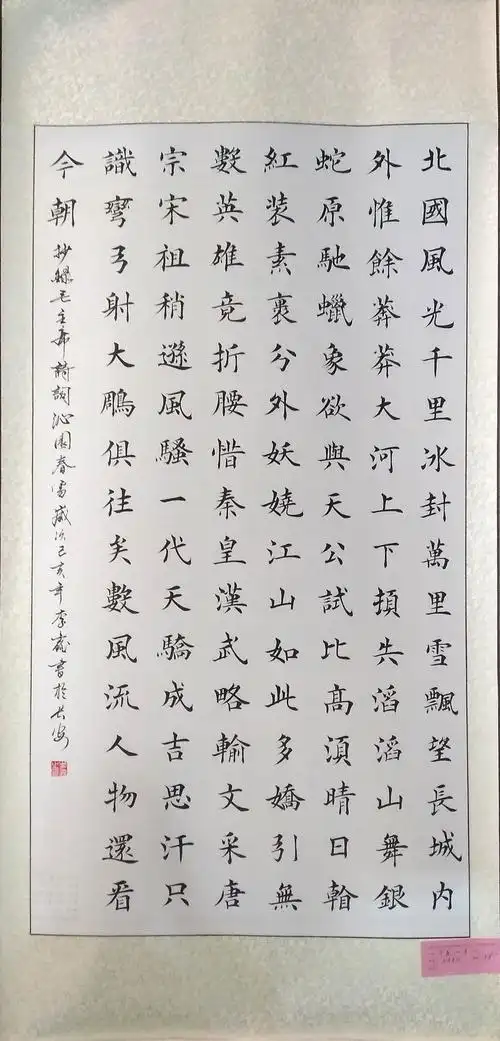 北國風光千里冰封萬里雪飄望長城内
外惟餘莽莽大河上下頓失滔滔山舞銀
蛇原馳蠟象欲與天公試比高湏晴日看
紅装素裹分外妖嬈江山如此多嬌引無
數英雄竟折腰惜秦皇漢武略輸文采唐
宗宋祖稍遜風騷一代天驕成吉思汗只
識彎弓射大鵰俱往矣數風流人物還看
今朝 抄録毛主席詩詞沁園春雪歲次己亥年李書於長安